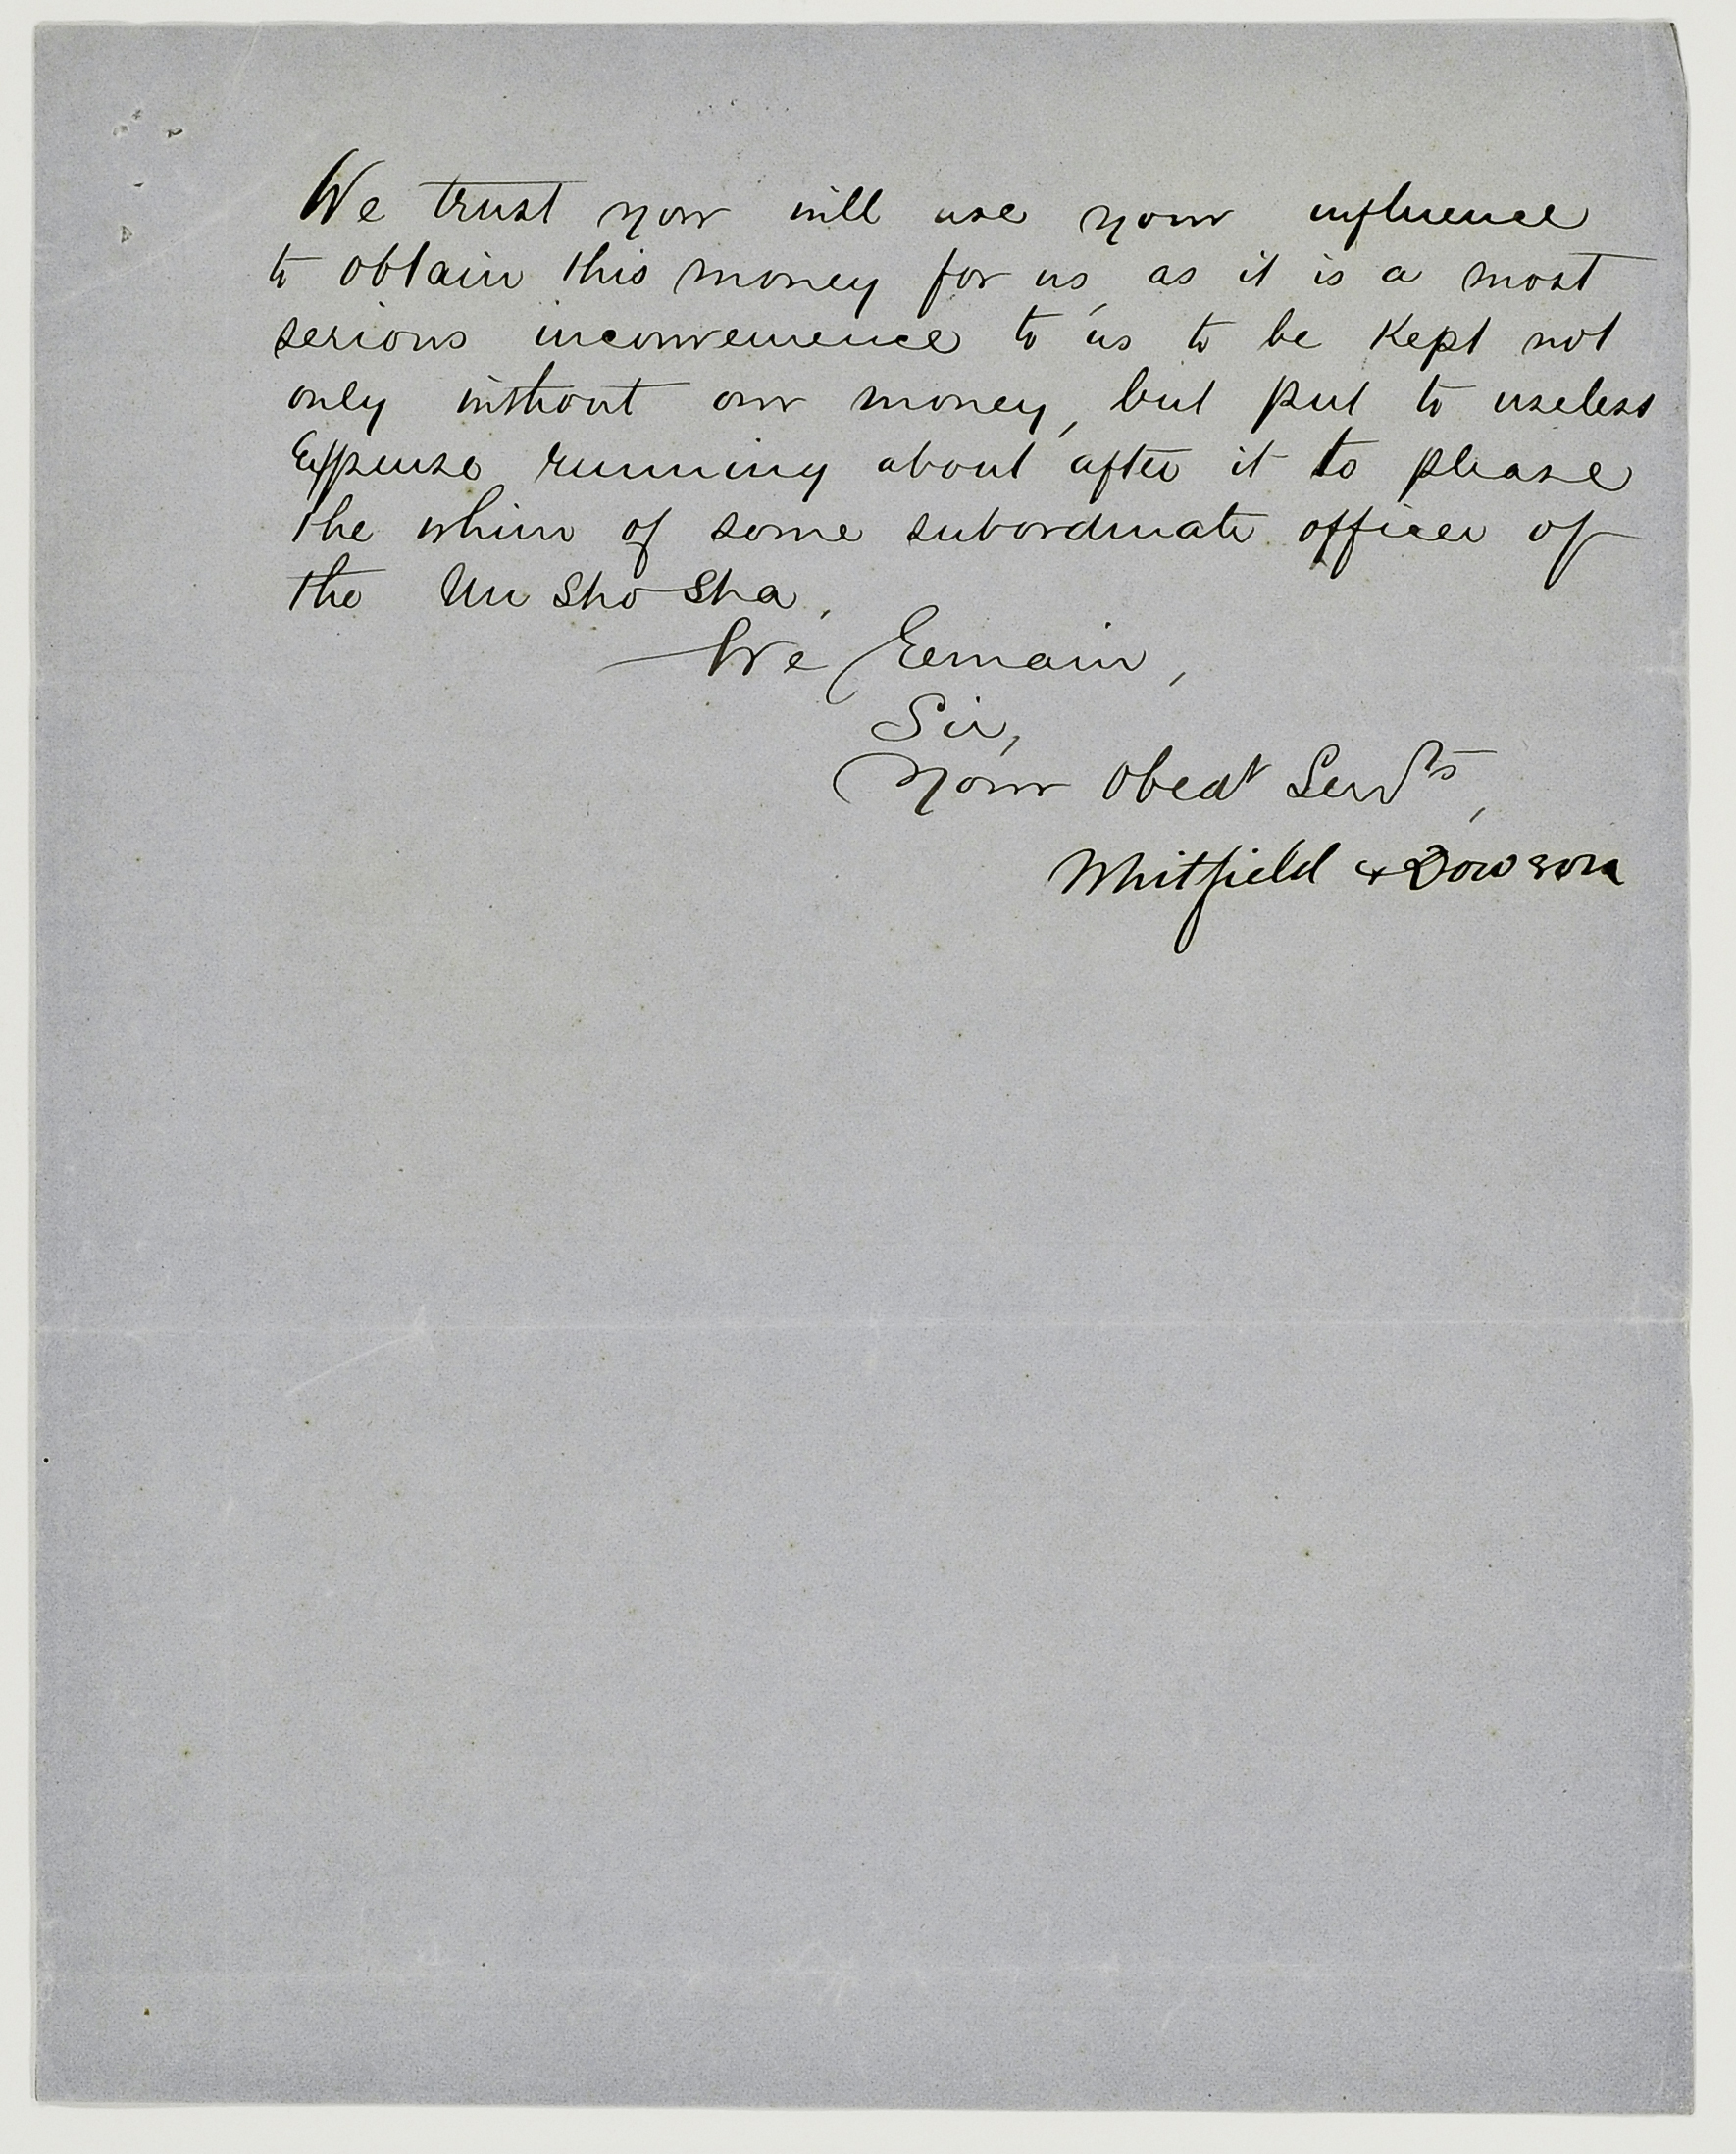 We trust you will use your influence
to obtain this money for us, as it is a most
serious inconvenience to us to be kept not
only without our money, but put to useless
Expense running about after it to please
the whim of some subordinate officer of
the Un Sho Sha,
We Remain,
Sir,
Your Obedt Servts,
Whitfield & Dowson